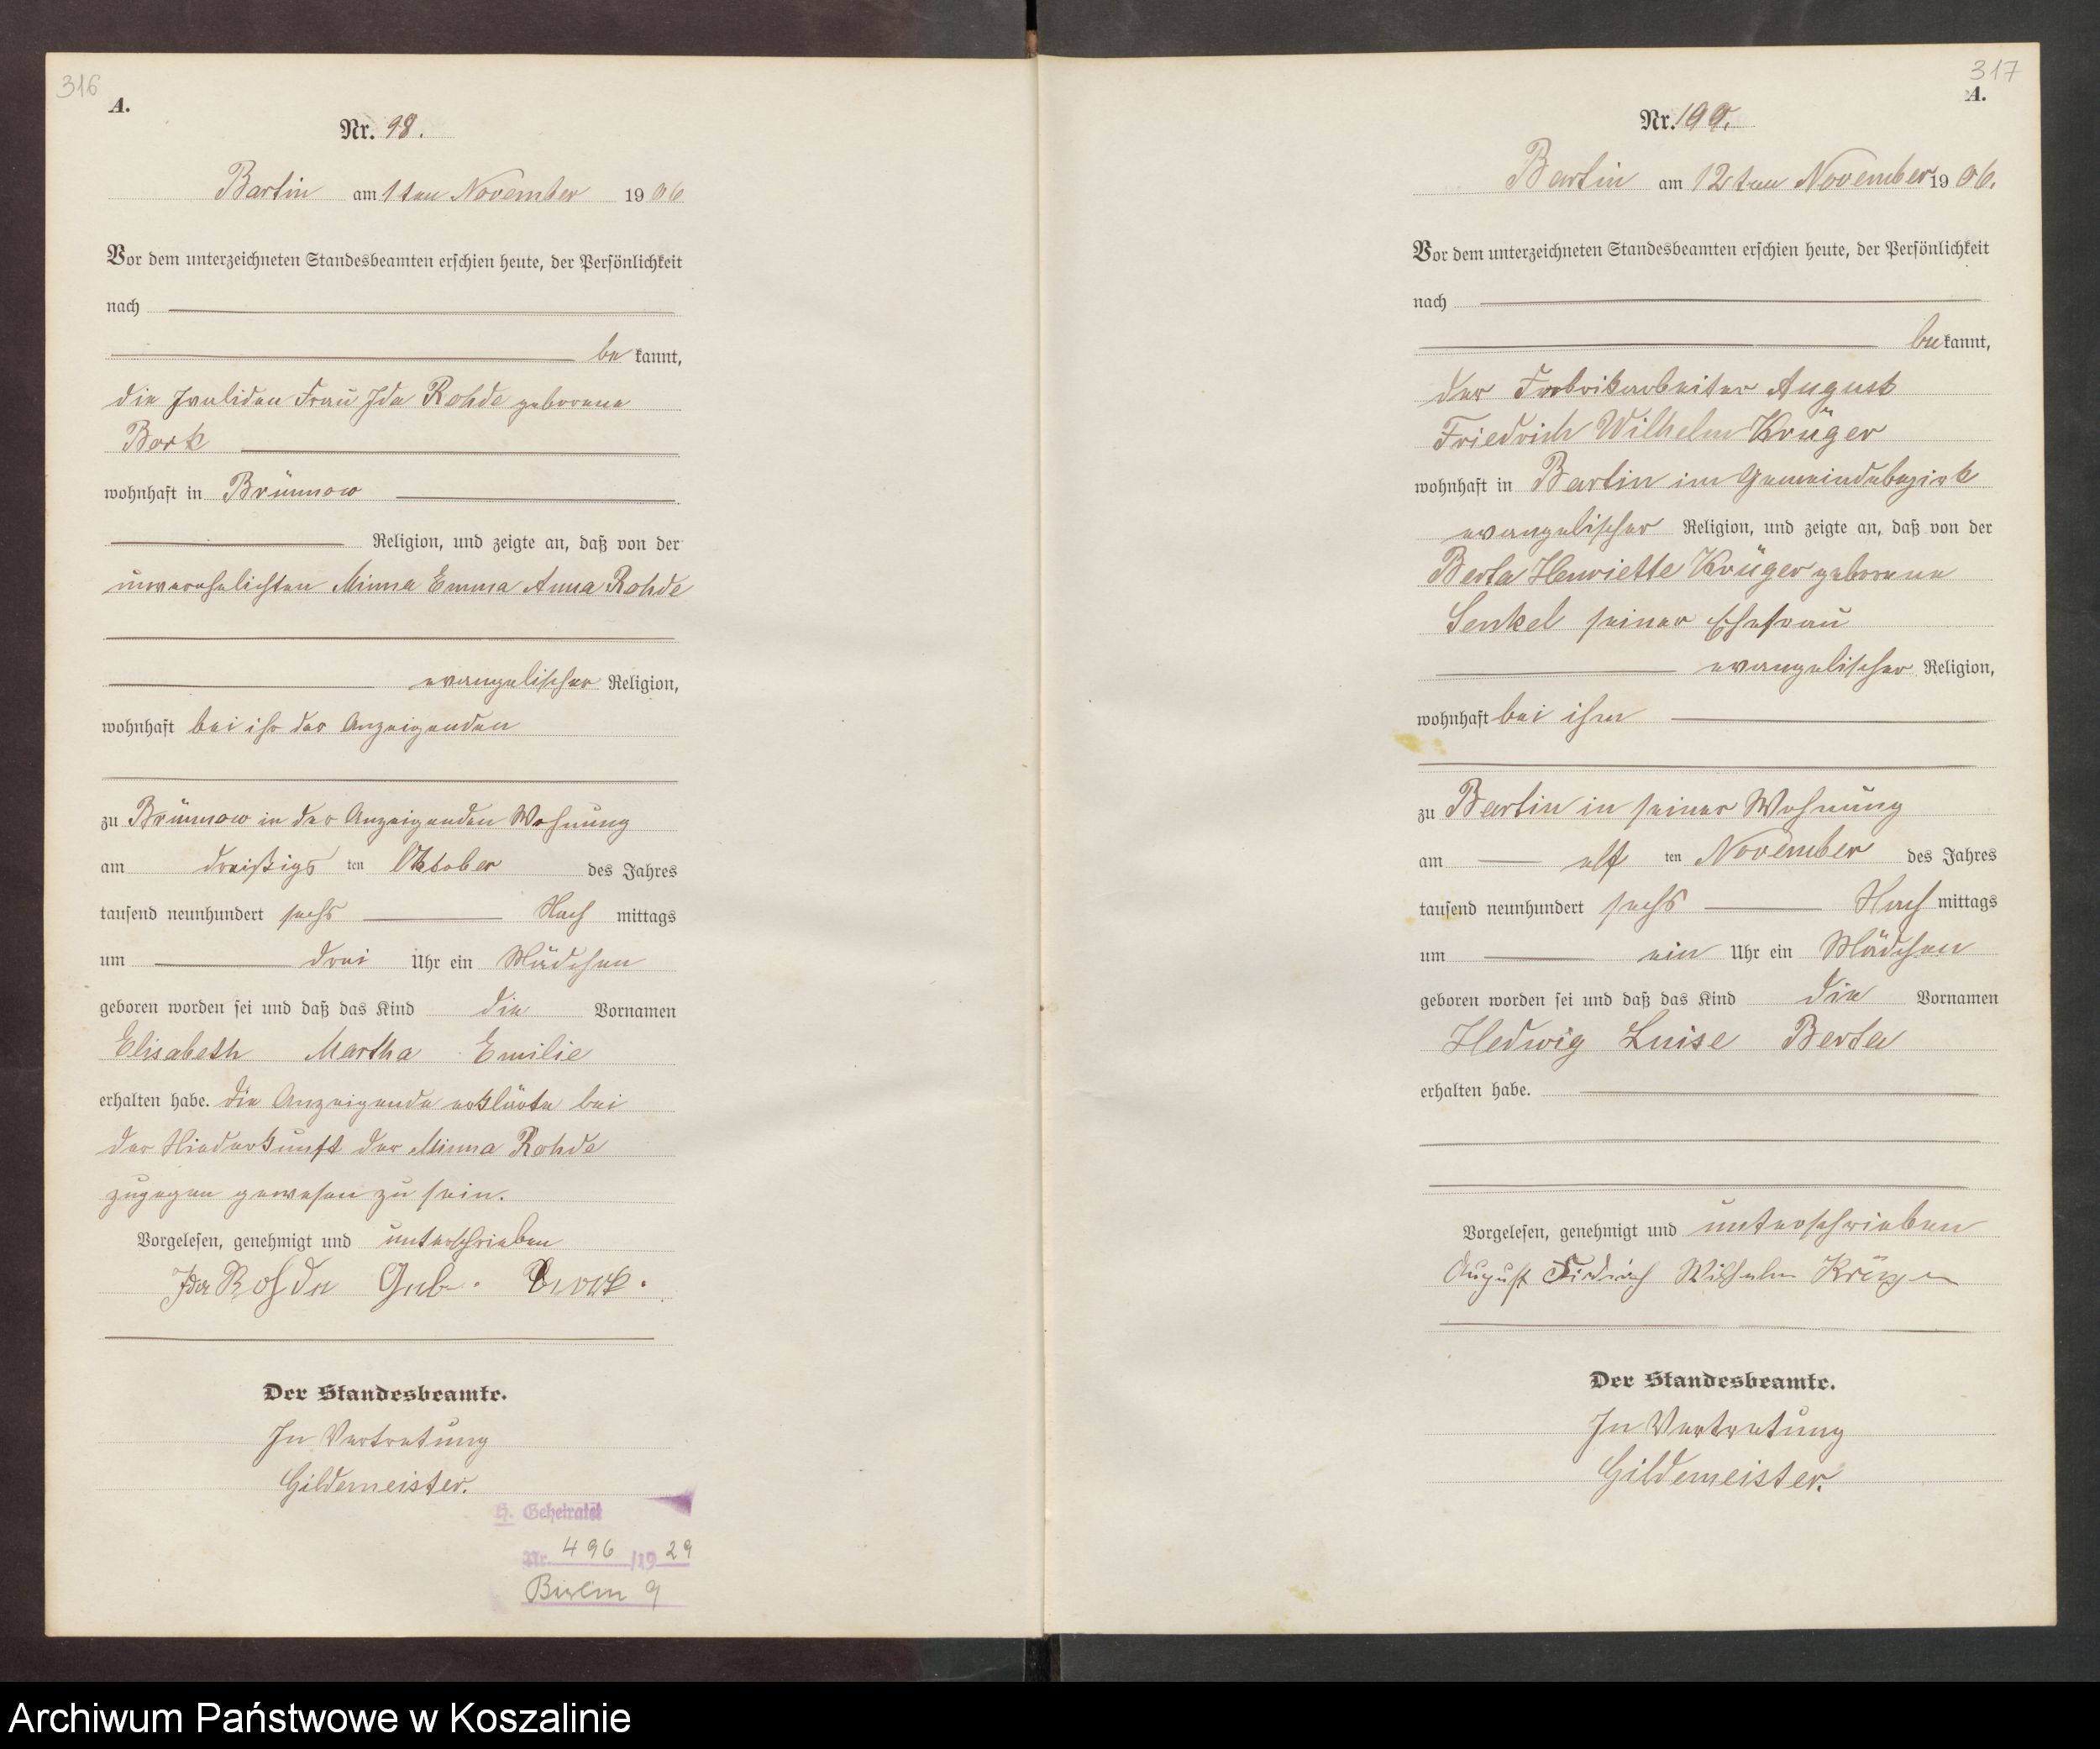 316
A.
Nr. 98.
Bartin am 1ten November 1906
Vor dem unterzeichneten Standesbeamten erschien heute, der Persönlichkeit
nach
bekannt,
die Invaliden Frau Ida Rohde geborene
Bork
wohnhaft in Brünnow
Religion, und zeigte an, daß von der
unverehelichten Minna Emma Anna Rohde
evangelischer Religion,
wohnhaft bei ihr der Anzeigenden
zu Brünnow in der Anzeigenden Wohnung
am dreißigs ten Oktober des Jahres
tausend neunhundert sechs Nach mittags
um drei Uhr ein Mädchen
geboren worden sei und daß das Kind die Vornamen
Elisabeth Martha Emilie
erhalten habe. Die Anzeigende erklärte bei
der Niederkunft der Minna Rohde
zugegen gewesen zu sein.
Vorgelesen, genehmigt und unterschrieben
Ida Rohde Geb. Bork.
Der Standesbeamte.
In Vertretung
Gildemeister.
H. Geheiratet
Nr. 496 /1929
Berlin 9
317
A.
Nr. 100.
Bartin am 12ten November 1906.
Vor dem unterzeichneten Standesbeamten erschien heute, der Persönlichkeit
nach
bekannt,
der Fabrikarbeiter August
Friedrich Wilhelm Krüger
wohnhaft in Bartin im Gemeindebezirk
evangelischer Religion, und zeigte an, daß von der
Berta Henriette Krüger geborene
Senkel seiner Ehefrau
evangelischer Religion,
wohnhaft bei ihm
zu Bartin in seiner Wohnung
am elf ten November des Jahres
tausend neunhundert sechs Nach mittags
um ein Uhr ein Mädchen
geboren worden sei und daß das Kind die Vornamen
Hedwig Luise Berta
erhalten habe.
Vorgelesen, genehmigt und unterschrieben
August Wilhelm Krüger
Der Standesbeamte.
In Vertretung
Gildemeister.
Archiwum Państwowe w Koszalinie